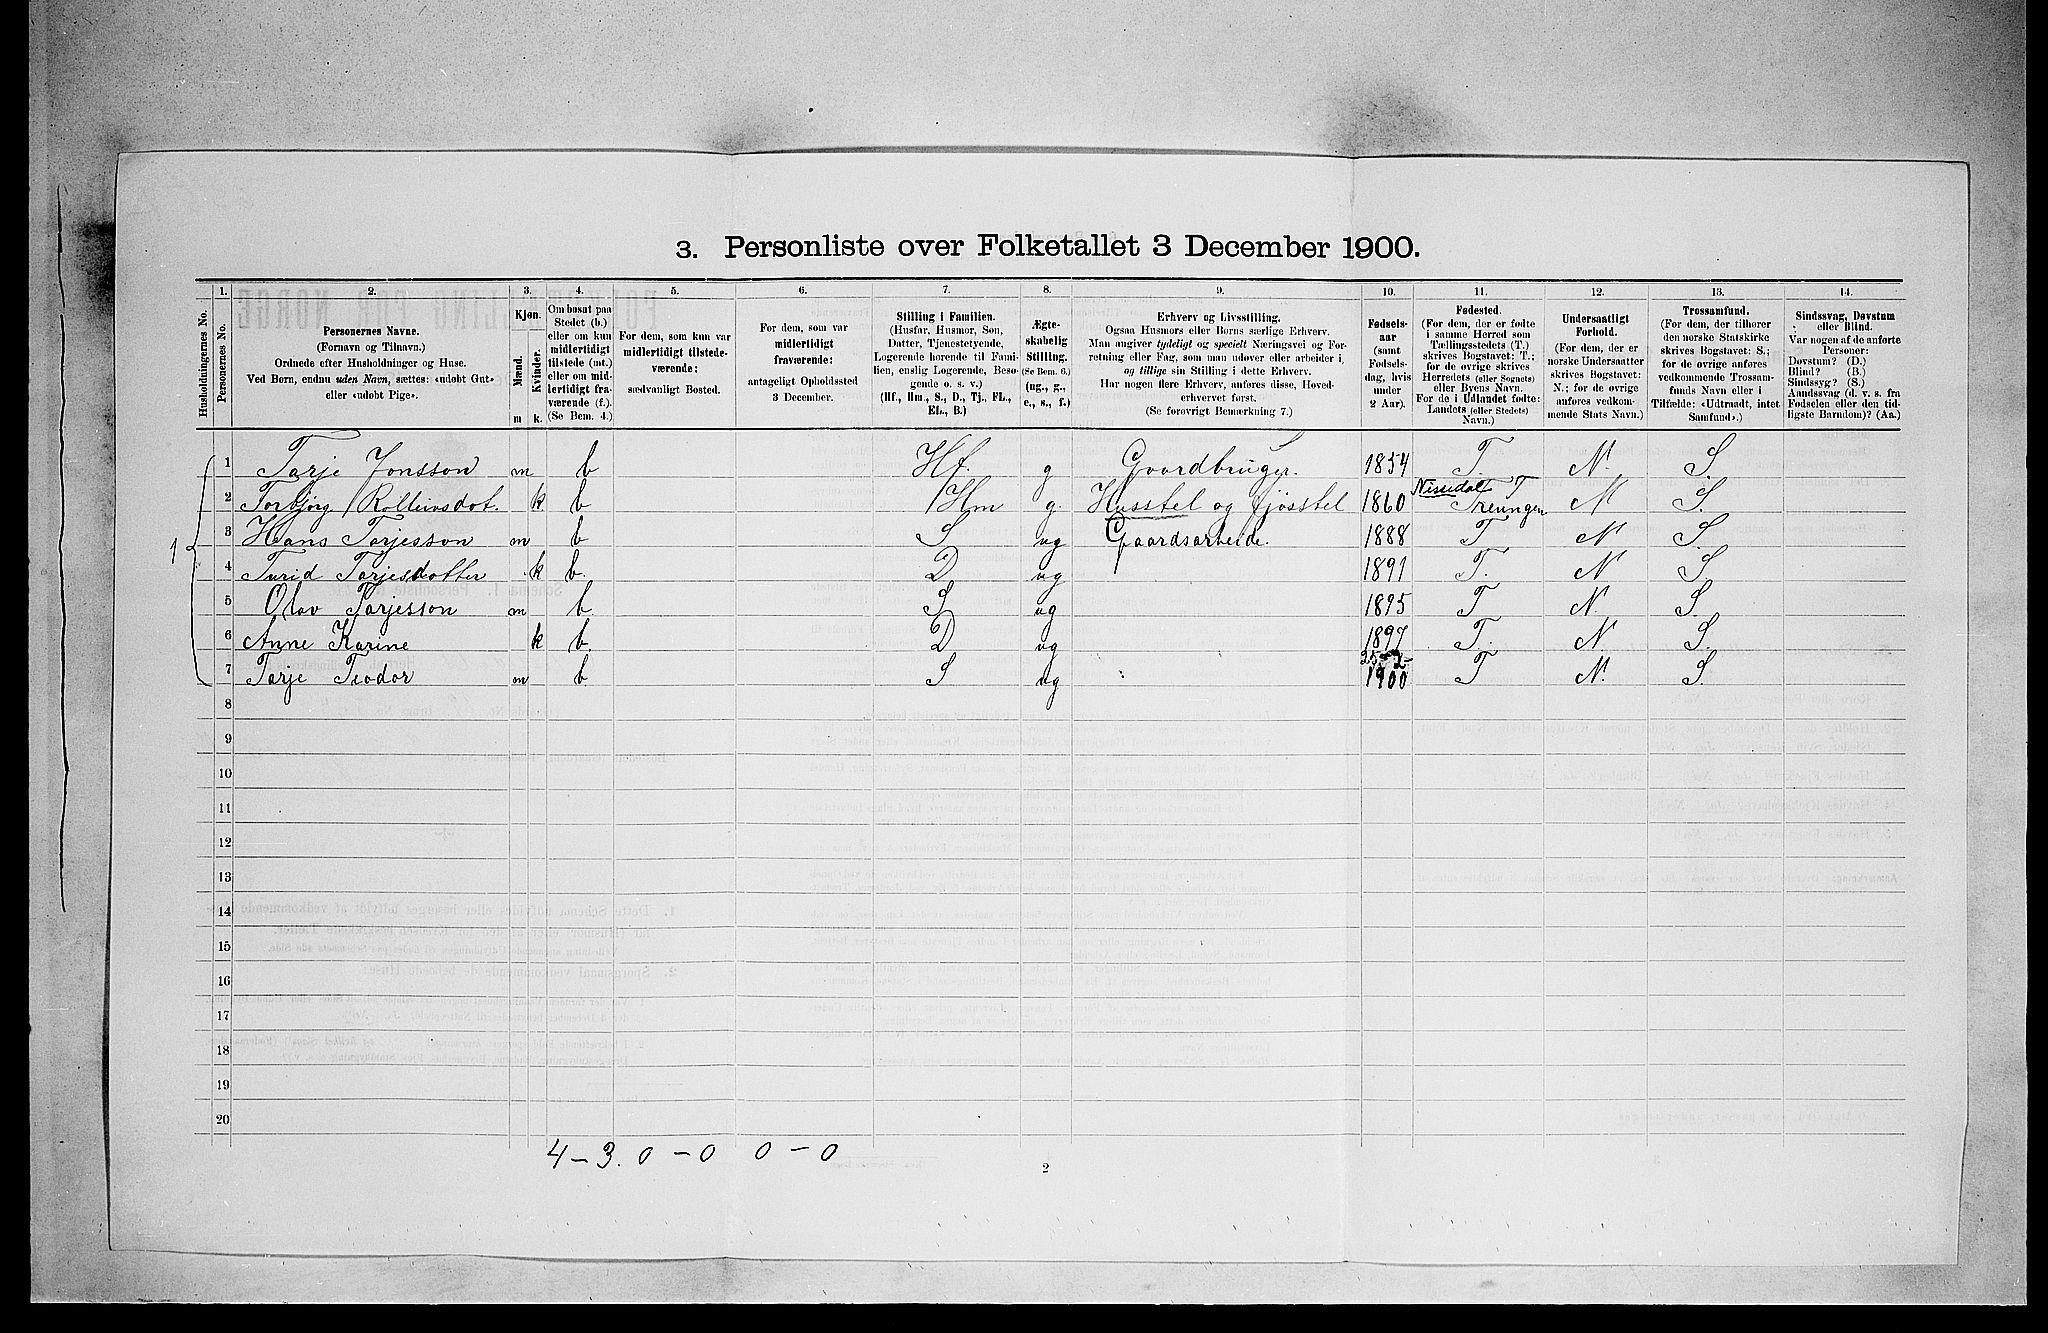 3. Personliste over Folketallet 3 December 1900.
1. 2. 3. 4. 5. 6. 7. 8. 9. 10. 11. 12. 13. 14.
Husholdningernes No.
Personernes No.
Personernes Navne.
(Fornavn og Tilnavn.)
Ordnede efter Husholdninger og Huse.
Ved Børn, endnu uden Navn, sættes: «udøbt Gut»
eller «udøbt Pige».
Kjøn.
Mænd.
Kvinder.
m k.
Om bosat paa
Stedet (b.)
eller om kun
midlertidigt
tilstede (mt.)
eller om mid-
lertidigt fra-
værende (f.).
(Se Bem. 4.)
For dem, som kun var
midlertidigt tilstede-
værende:
sædvanligt Bosted.
For dem, som var
midlertidigt
fraværende:
antageligt Opholdssted
3 December.
Stilling i Familien.
(Husfar, Husmor, Søn,
Datter, Tjenestetyende,
Logerende hørende til Fami-
lien, enslig Logerende, Besø-
gende o. s. v.)
(Hf., Hm., S., D., Tj., FL.,
EL., B.)
Ægte-
skabelig
Stilling.
(Se Bem. 6.)
(ug., g.,
e., s., f.)
Erhverv og Livsstilling.
Ogsaa Husmors eller Børns særlige Erhverv.
Man angiver tydeligt og specielt Næringsvei og For-
retning eller Fag, som man udøver eller arbeider i,
og tillige sin Stilling i dette Erhverv.
Har nogen flere Erhverv, anføres disse, Hoved-
erhvervet først.
(Se forøvrigt Bemærkning 7.)
Fødsels-
aar
(samt
Fødsels-
dag, hvis
under
2 Aar).
Fødested.
(For dem, der er fødte
i samme Herred som
Tællingsstedets (T.)
skrives Bogstavet: T.;
for de øvrige skrives
Herredets (eller Sognets)
eller Byens Navn.
For de i Udlandet fødte:
Landets (eller Stedets)
Navn.)
Undersaatligt
Forhold.
(For dem, der er
norske Undersaatter
skrives Bogstavet:
N.; for de øvrige
anføres vedkom-
mende Stats Navn.)
Trossamfund.
(For dem, der tilhører
den norske Statskirke
skrives Bogstavet: S.;
for de øvrige anføres
vedkommende Trossam-
funds Navn eller i
Tilfælde: «Udtraadt, intet
Samfund».)
Sindssvag, Døvstum
eller Blind.
Var nogen af de anførte
Personer:
Døvstum? (D.)
Blind? (B.)
Sindssyg? (S.)
Aandssvag (d. v. s. fra
Fødselen eller den tid-
ligste Barndom)? (Aa.)
1 Tarje Jonsson m b Hf. g Gaardbruger. 1854 T. N. S.
Nissedal T
2 Torbjørg Rolleivsdot. k b Hm g. Husstel og fjøsstel 1860 Treungen N S.
1 3 Hans Tarjesson m b S ug Gaardsarbeide. 1888 T N S.
4 Turid Tarjesdotter k b. D ug 1891 T. N S.
5 Olav Tarjesson m b. S ug 1895 T N. S.
6 Anne Karine k b. D ug 1897 T. N. S.
25-2-
7 Tarje Teodor m b S ug 1900 T N. S.
8
9
10
11
12
13
14
15
16
17
18
19
20
4 - 3. 0 - 0 0 - 0
2